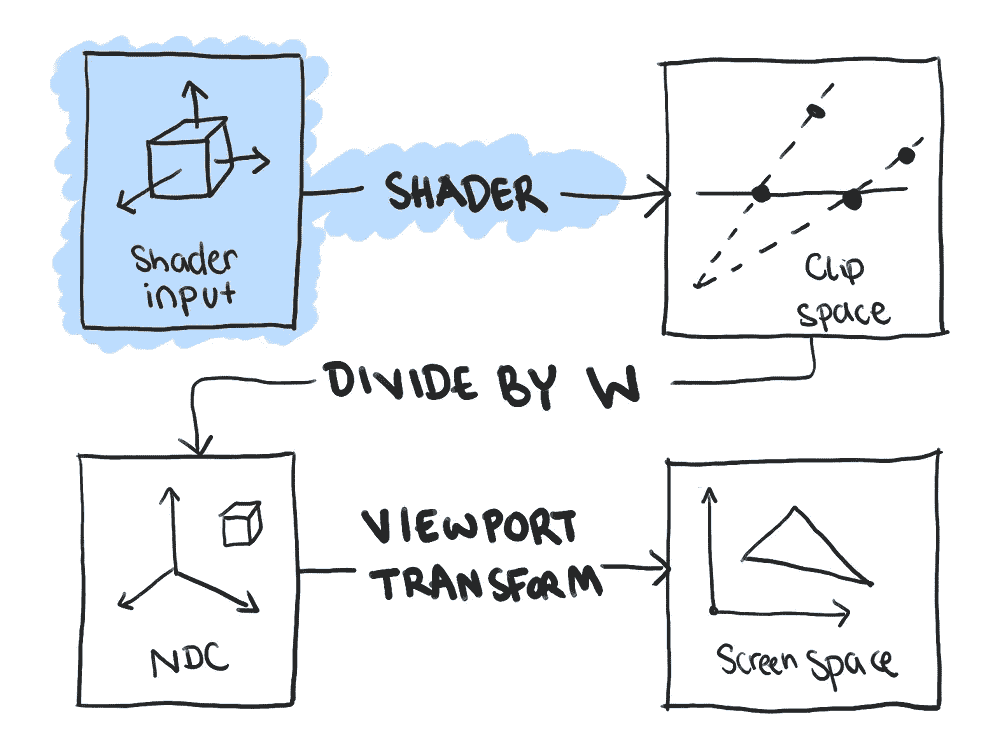 Shader
input
SHADER
Clip
space
DIVIDE BY W
NDC
VIEWPORT
TRANSFORM
Screen Space